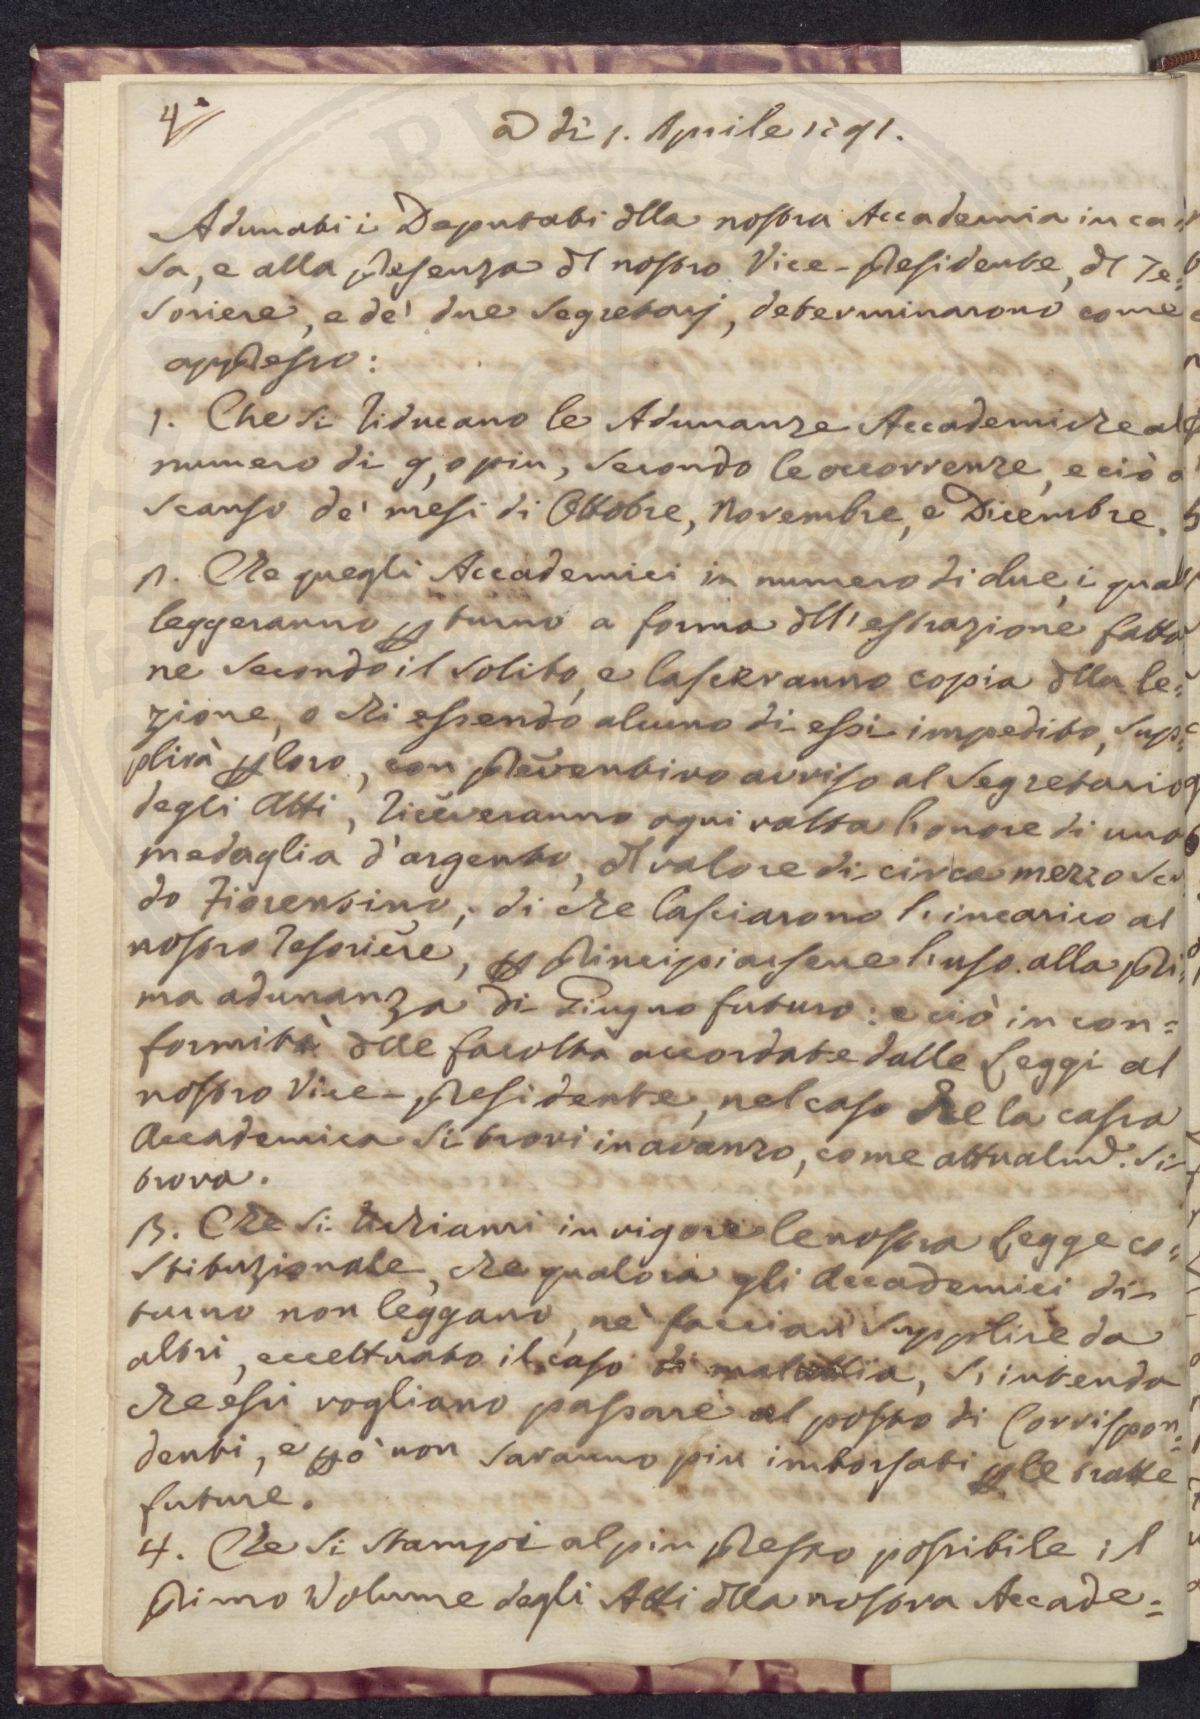 4.
a dì 1. Aprile 1791.
Adunati i Deputati dlla nostra Accademia in ca:
sa, e alla presenza dl nostro Vice-presidente, dl Te:
soriere, e de' due Segretarj, determinarono come
appresso:
1. Che si riducano le Adunanze Accademiche al
numero di 9, o piu, secondo le occorrenze, e ciò a
scanso de' mesi di Ottobre, Novembre, e Dicembre.
2. Che quegli Accademici in numero di due, i quali
leggeranno p turno a forma dll'estrazione fatta
ne secondo il solito, e lasceranno copia dlla le:
zione, o chi essendo alcuno di essi impedito, sup:
plirà p loro, con preventivo avviso al Segretario
degli Atti, riceveranno ogni volta l'onore di una
medaglia d'argento, dl valore di circa mezzo scu
do Fiorentino; di che lasciarono l'incarico al
nostro Tesoriere, p principiarsene l'uso alla pri:
ma adunanza di Giugno futuro: e ciò in con=
formità dlle facoltà accordate dalle Leggi al
nostro Vice-presidente, nel caso che la cassa
Accademica si trovi in avanzo, come attualmte. si
trova.
3. Che si richiami in vigore la nostra Legge co:
stituzionale, che qualora gli Accademici di
turno non leggano, nè faccian supplire da
altri, eccettuato il caso di malattia, s'intenda
che essi vogliano passare al posto di Corrispon:
denti, e pò non saranno piu imborsati p le tratte
future.
4. Che si stampi al piu presto possibile il
primo Volume degli Atti dlla nostra Accade: